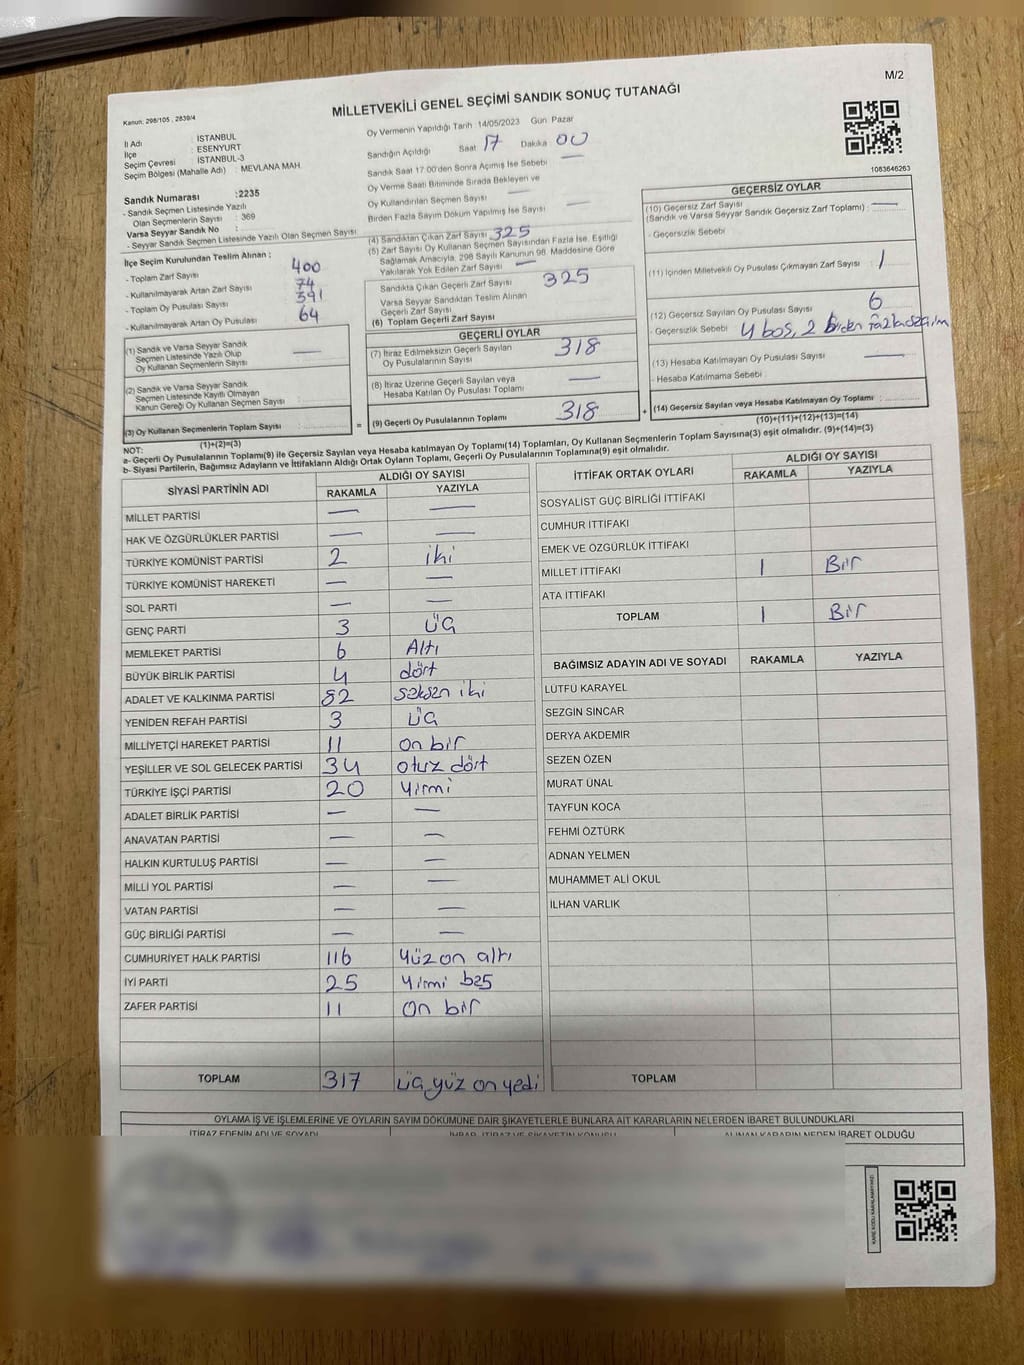 M/2
MİLLETVEKİLİ GENEL SEÇİMİ SANDIK SONUÇ TUTANAĞI
Kanun: 298/105 , 2839/4
İl Adı : İSTANBUL
İlçe : ESENYURT
Seçim Çevresi : İSTANBUL-3
Seçim Bölgesi (Mahalle Adı) : MEVLANA MAH.
Sandık Numarası :2235
- Sandık Seçmen Listesinde Yazılı
Olan Seçmenlerin Sayısı : 369
Varsa Seyyar Sandık No :
- Seyyar Sandık Seçmen Listesinde Yazılı Olan Seçmen Sayısı :
Oy Vermenin Yapıldığı Tarih 14/05/2023 Gün Pazar
Sandığın Açıldığı Saat 17 Dakika 00
Sandık Saat 17.00'den Sonra Açımış İse Sebebi —
Oy Verme Saati Bitiminde Sırada Bekleyen ve
Oy Kullandırılan Seçmen Sayısı —
Birden Fazla Sayım Döküm Yapılmış İse Sayısı —
1083646263
İlçe Seçim Kurulundan Teslim Alınan :
- Toplam Zarf Sayısı 400
- Kullanılmayarak Artan Zarf Sayısı 74
- Toplam Oy Pusulası Sayısı 391
- Kullanılmayarak Artan Oy Pusulası 64
(1) Sandık ve Varsa Seyyar Sandık
Seçmen Listesinde Yazılı Olup
Oy Kullanan Seçmenlerin Sayısı —
(2) Sandık ve Varsa Seyyar Sandık
Seçmen Listesinde Kayıtlı Olmayan
Kanun Gereği Oy Kullanan Seçmen Sayısı :
(3) Oy Kullanan Seçmenlerin Toplam Sayısı :
(1)+(2)=(3)
(4) Sandıktan Çıkan Zarf Sayısı 325
(5) Zarf Sayısı Oy Kullanan Seçmen Sayısından Fazla İse, Eşitliği
Sağlamak Amacıyla, 298 Sayılı Kanunun 98. Maddesine Göre
Yakılarak Yok Edilen Zarf Sayısı —
Sandıkta Çıkan Geçerli Zarf Sayısı 325
Varsa Seyyar Sandıktan Teslim Alınan
Geçerli Zarf Sayısı
(6) Toplam Geçerli Zarf Sayısı
GEÇERLİ OYLAR
(7) İtiraz Edilmeksizin Geçerli Sayılan
Oy Pusulalarının Sayısı 318
(8) İtiraz Üzerine Geçerli Sayılan veya
Hesaba Katılan Oy Pusulası Toplamı —
= (9) Geçerli Oy Pusulalarının Toplamı 318 +
GEÇERSİZ OYLAR
(10) Geçersiz Zarf Sayısı —
(Sandık ve Varsa Seyyar Sandık Geçersiz Zarf Toplamı) :
- Geçersizlik Sebebi
(11) İçinden Milletvekili Oy Pusulası Çıkmayan Zarf Sayısı : 1
(12) Geçersiz Sayılan Oy Pusulası Sayısı 6
- Geçersizlik Sebebi 4 boş, 2 birden
(13) Hesaba Katılmayan Oy Pusulası Sayısı —
- Hesaba Katılmama Sebebi :
(14) Geçersiz Sayılan veya Hesaba Katılmayan Oy Toplamı :
(10)+(11)+(12)+(13)=(14)
NOT:
a- Geçerli Oy Pusulalarının Toplamı(9) ile Geçersiz Sayılan veya Hesaba katılmayan Oy Toplamı(14) Toplamları, Oy Kullanan Seçmenlerin Toplam Sayısına(3) eşit olmalıdır. (9)+(14)=(3)
b- Siyasi Partilerin, Bağımsız Adayların ve İttifakların Aldığı Ortak Oyların Toplamı, Geçerli Oy Pusulalarının Toplamına(9) eşit olmalıdır.
SİYASİ PARTİNİN ADI ALDIĞI OY SAYISI
RAKAMLA YAZIYLA
MİLLET PARTİSİ — —
HAK VE ÖZGÜRLÜKLER PARTİSİ — —
TÜRKİYE KOMÜNİST PARTİSİ 2 iki
TÜRKİYE KOMÜNİST HAREKETİ — —
SOL PARTİ — —
GENÇ PARTİ 3 üç
MEMLEKET PARTİSİ 6 Altı
BÜYÜK BİRLİK PARTİSİ 4 dört
ADALET VE KALKINMA PARTİSİ 82 seksen iki
YENİDEN REFAH PARTİSİ 3 üç
MİLLİYETÇİ HAREKET PARTİSİ 11 on bir
YEŞİLLER VE SOL GELECEK PARTİSİ 34 otuz dört
TÜRKİYE İŞÇİ PARTİSİ 20 yirmi
ADALET BİRLİK PARTİSİ — —
ANAVATAN PARTİSİ — —
HALKIN KURTULUŞ PARTİSİ — —
MİLLİ YOL PARTİSİ — —
VATAN PARTİSİ — —
GÜÇ BİRLİĞİ PARTİSİ — —
CUMHURİYET HALK PARTİSİ 116 yüz on altı
İYİ PARTİ 25 yirmi beş
ZAFER PARTİSİ 11 on bir
TOPLAM 317 üç yüz on yedi
İTTİFAK ORTAK OYLARI ALDIĞI OY SAYISI
RAKAMLA YAZIYLA
SOSYALİST GÜÇ BİRLİĞİ İTTİFAKI
CUMHUR İTTİFAKI
EMEK VE ÖZGÜRLÜK İTTİFAKI
MİLLET İTTİFAKI 1 Bir
ATA İTTİFAKI
TOPLAM 1 Bir
BAĞIMSIZ ADAYIN ADI VE SOYADI RAKAMLA YAZIYLA
LÜTFÜ KARAYEL
SEZGİN SİNCAR
DERYA AKDEMİR
SEZEN ÖZEN
MURAT ÜNAL
TAYFUN KOCA
FEHMİ ÖZTÜRK
ADNAN YELMEN
MUHAMMET ALİ OKUL
İLHAN VARLIK
TOPLAM
OYLAMA İŞ VE İŞLEMLERİNE VE OYLARIN SAYIM DÖKÜMÜNE DAİR ŞİKAYETLERLE BUNLARA AİT KARARLARIN NELERDEN İBARET BULUNDUKLARI
İTİRAZ EDENİN ADI VE SOYADI İHBAR, İTİRAZ VE ŞİKAYETİN KONUSU ALINAN KARARIN NEDEN İBARET OLDUĞU